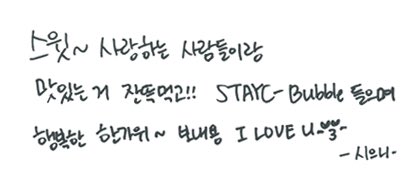 스윗~ 사랑하는 사람들이랑
맛있는거 잔뜩먹고!! STAYC-Bubble 들으며
행복한 한가위~ 보내용 I LOVE U
-시으니-